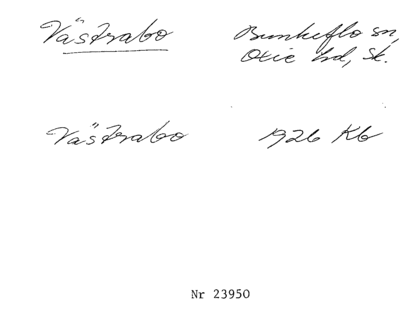 Västrabo
Bunkeflo sn,
Oxie hd, Sk.
Västrabo 1926 Kb
Nr 23950